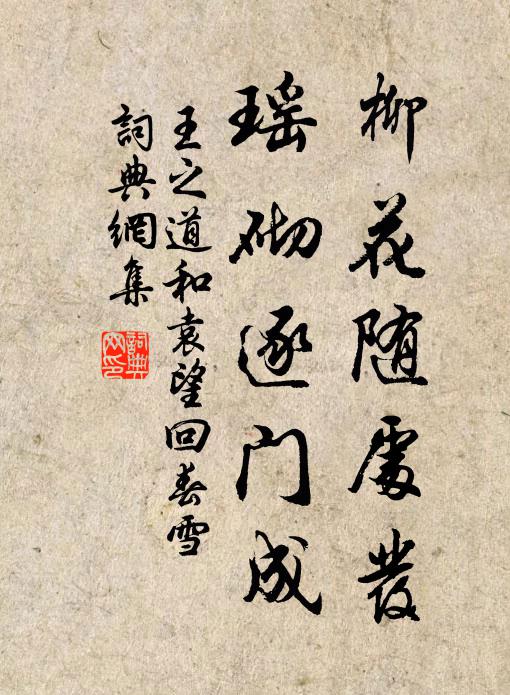 柳花随處發
瑶砌逐门成
王之道和袁望回春雪
詞典網集
詞典
网印